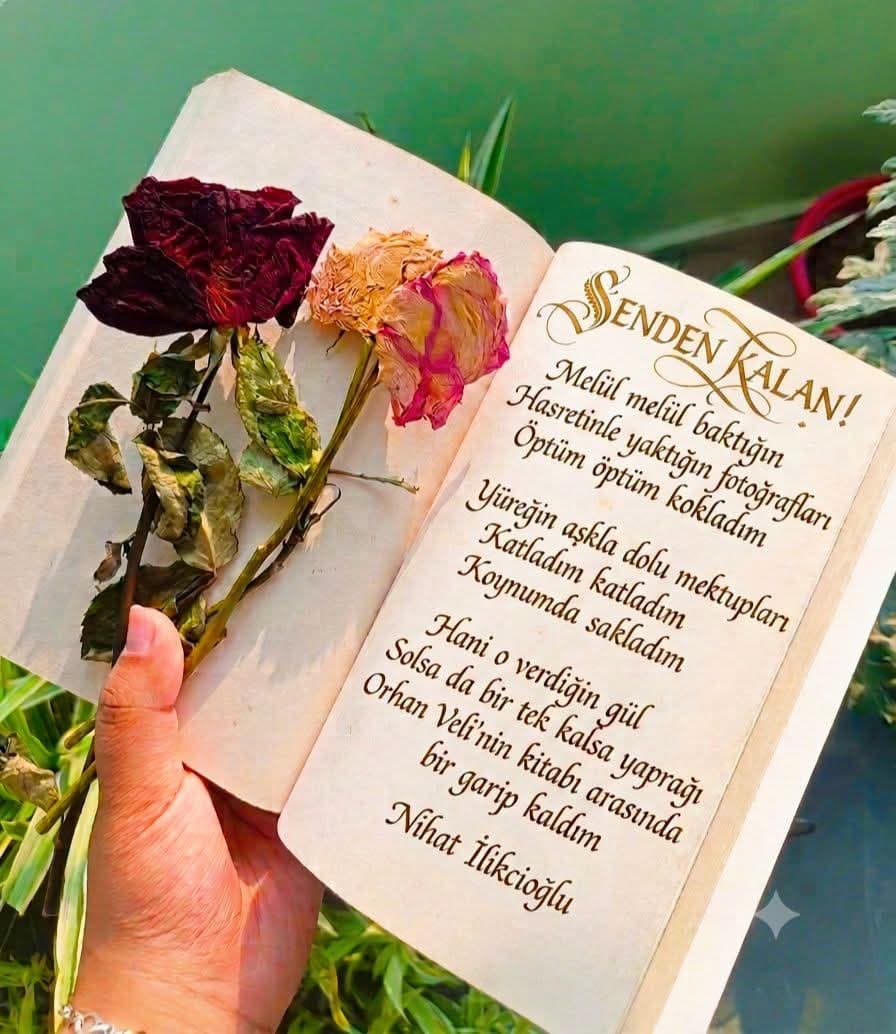 SENDEN KALAN!
Melül melül baktığın
Hasretinle yaktığın fotoğrafları
Öptüm öptüm kokladım
Yüreğin aşkla dolu mektupları
Katladım katladım
Koynumda sakladım
Hani o verdiğin gül
Solsa da bir tek kalsa yaprağı
Orhan Veli'nin kitabı arasında
bir garip kaldım
Nihat İlikcioğlu